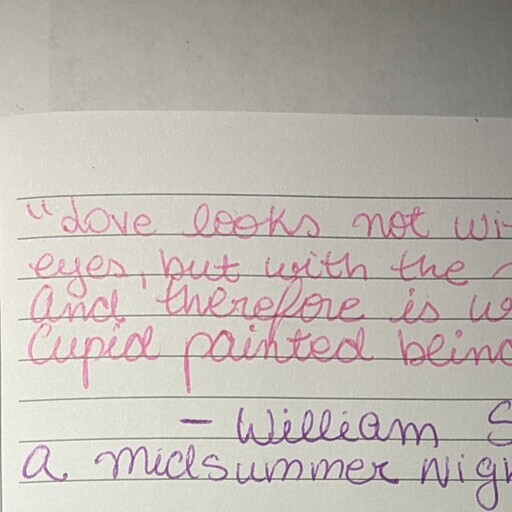 "Love looks not wi
eyes, but with the
And therefore is w
Cupid painted blind
- William S
A midsummer Nigh